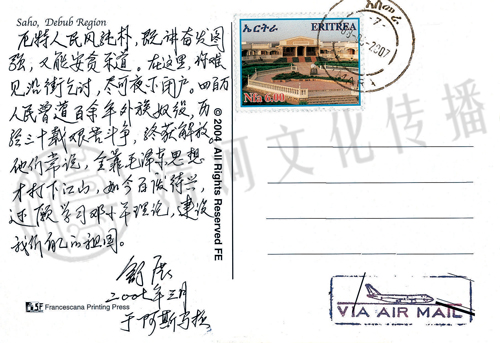 Saho, Debub Region
厄特人民风纯朴，既讲奋发图
强，又能安贫乐道。在这里，你难
见沿街乞讨，尽可夜不闭户。四百万
人民曾遭百余年外族奴役，历
经三十载艰苦斗争，终获解放。
他们常说，全靠毛泽东思想
才打下江山，如今百废待兴，
还愿学习邓小平理论，建设
我们自己的祖国。
舒展
三月
于阿斯马拉
Francescana Printing Press
© 2004 All Rights Reserved FE
ኤርትራ
ERITREA
Nfa 6.00
አስመራ
2007
VIA AIR MAIL
河文化传播